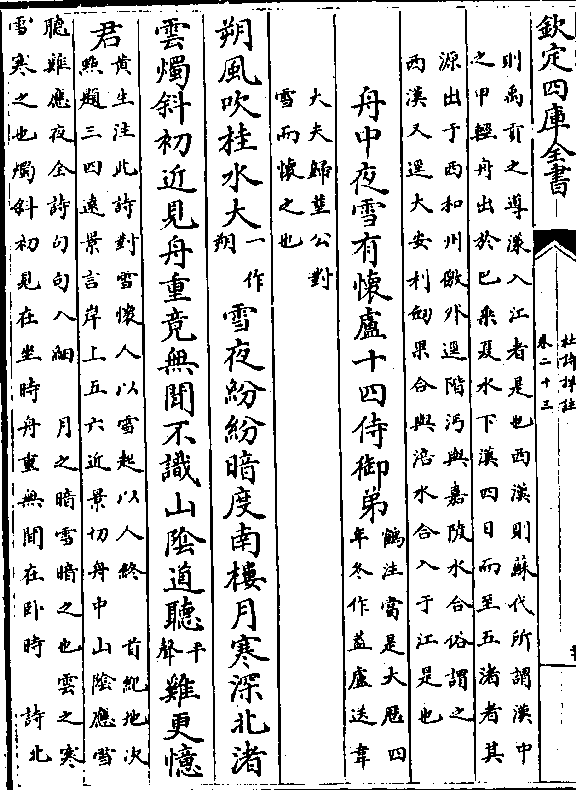 欽定四庫全書
杜詩詳註
卷二十三
則禹貢之導漾入江者是也西漢則蘇代所謂漢中
之甲輕舟出於巴乘夏水下漢四日而至五渚者其
源出于西和州徼外逕階沔與嘉陵水合俗謂之
西漢又逕大安利劔果合與涪水合入于江是也
舟中夜雪有懷盧十四侍御弟
鶴注當是大厯四
年冬作葢盧送韋
大夫歸塟公對
雪而懷之也
朔風吹桂水大一作朔雪夜紛紛暗度南樓月寒深北渚
雲燭斜初近見舟重竟無聞不識山陰道聽平聲雞更憶
君
黄生注此詩對雪懷人以雪起以人終 首紀地次
㸃題三四遠景言岸上五六近景切舟中山陰應雪
聽雞應夜全詩句句入細 月之暗雪暗之也雲之寒
雪寒之也燭斜初見在坐時舟重無聞在卧時 詩北